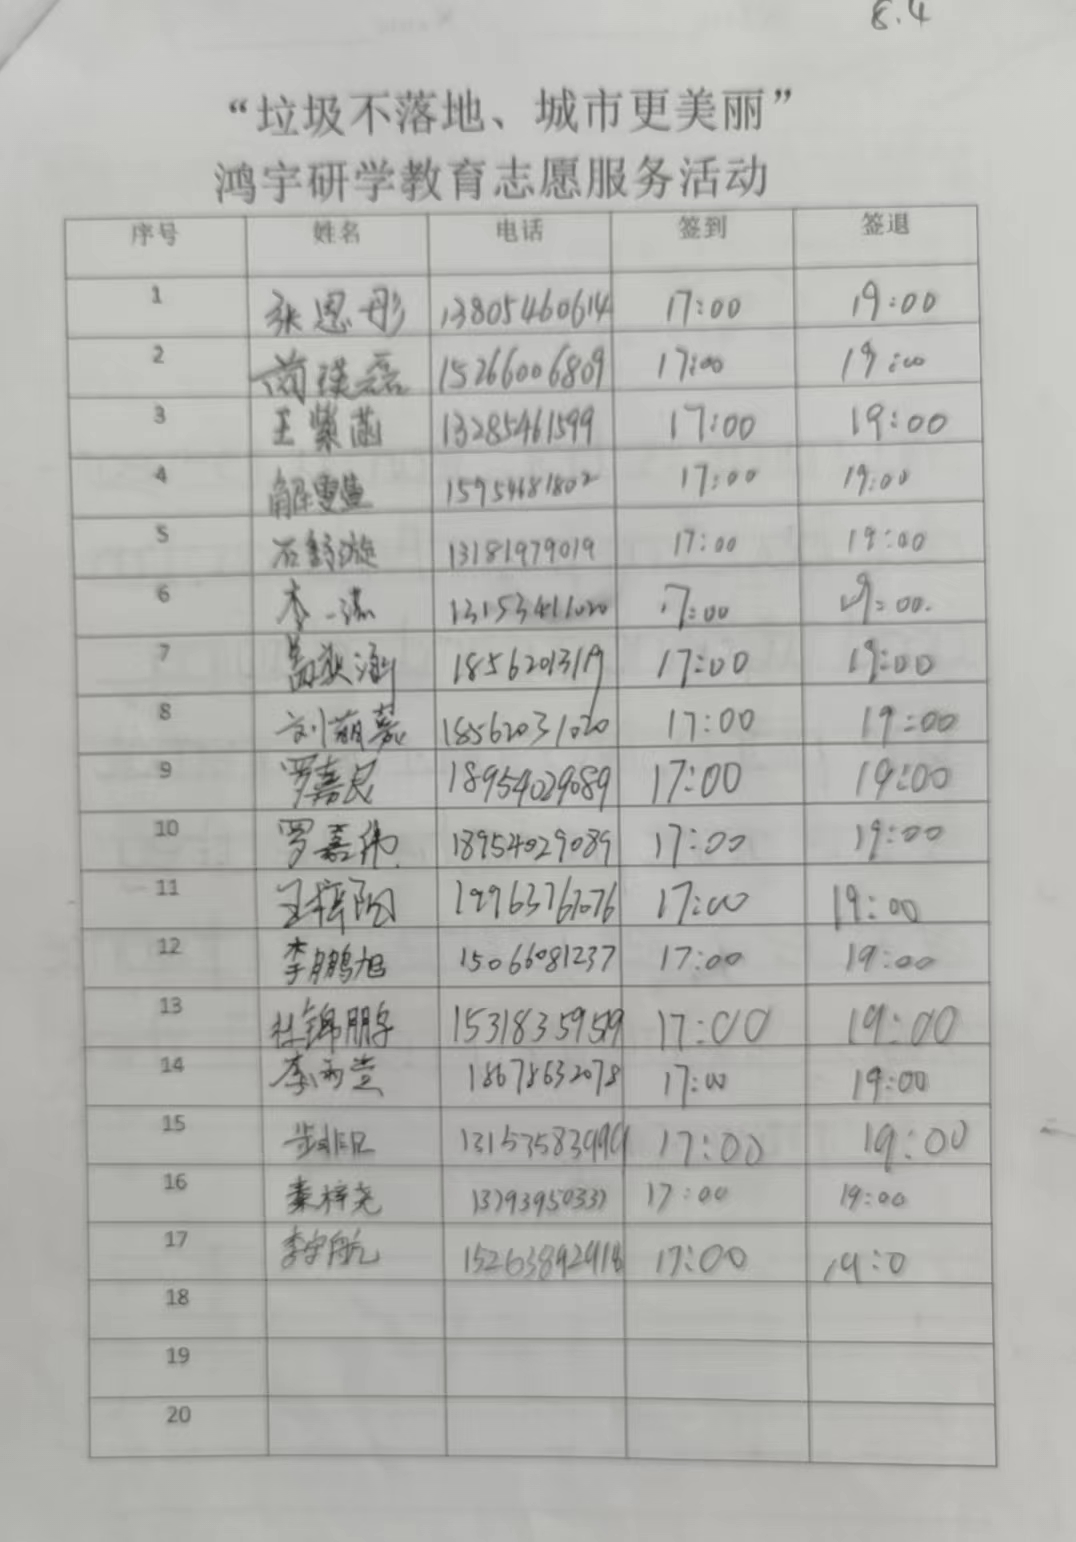 8.4
“垃圾不落地、城市更美丽”
鸿宇研学教育志愿服务活动
序号 姓名 电话 签到 签退
1 张恩彤 13805460614 17:00 19:00
2 15266006809 17:00 19:00
3 王紫菡 13285461599 17:00 19:00
4 15954681802 17:00 19:00
5 石舒漩 13181979019 17:00 19:00
6 李一诺 17:00 19:00.
7 18562013119 17:00 19:00
8 刘萌蕊 18562031020 17:00 19:00
9 罗嘉良 18954029089 17:00 19:00
10 罗嘉伟 18954029089 17:00 19:00
11 王梓阳 17:00 19:00
12 李鹏旭 15066081237 17:00 19:00
13 杜锦鹏宇 17:00 19:00
14 李雨萱 18678632078 17:00 19:00
15 17:00 19:00
16 秦梓尧 13793950337 17:00 19:00
17 李宇航 15263892918 17:00 19:0
18
19
20